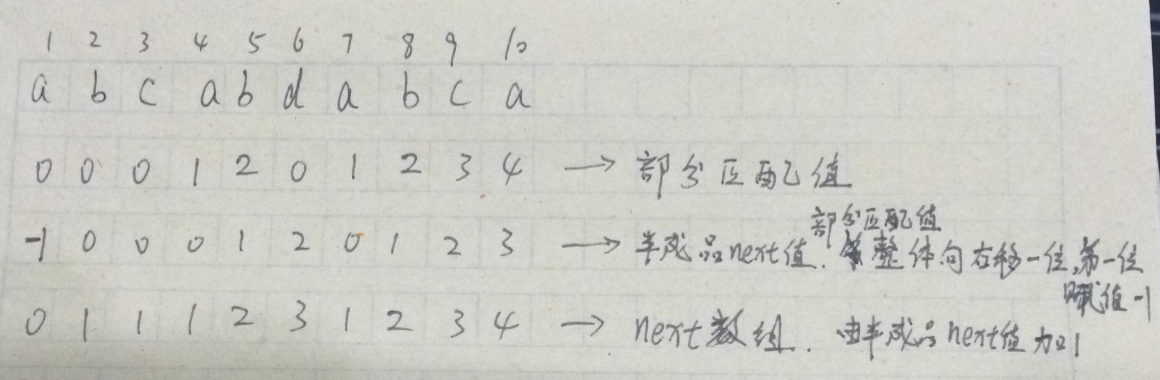 1 2 3 4 5 6 7 8 9 10
a b c a b d a b c a
0 0 0 1 2 0 1 2 3 4 → 部分匹配值
-1 0 0 0 1 2 0 1 2 3 → 半成品next值. 部分匹配值整体向右移一位,第一位
赋值-1
0 1 1 1 2 3 1 2 3 4 → next数组. 由半成品next值加1